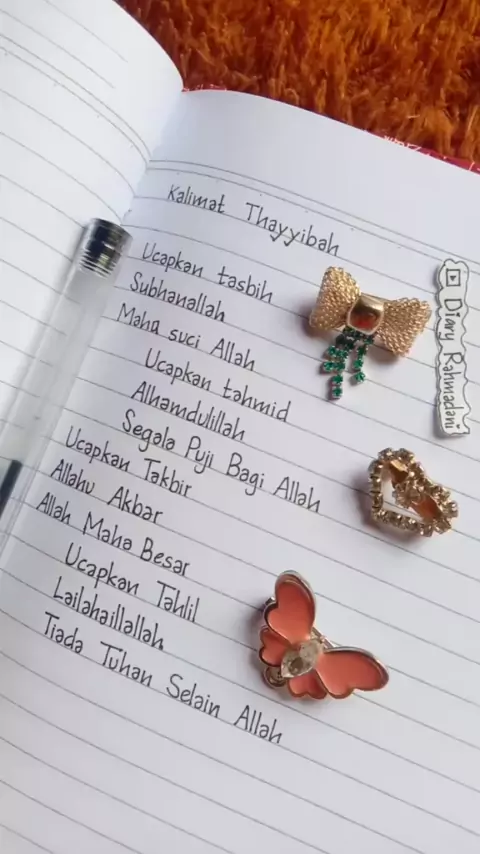 Kalimat Thayyibah
Ucapkan tasbih
Subhanallah
Maha suci Allah
Ucapkan tahmid
Alhamdulillah
Segala Puji Bagi Allah
Ucapkan Takbir
Allahu Akbar
Allah Maha Besar
Ucapkan Tahlil
Lailahaillallah
Tiada Tuhan Selain Allah
Diary Rahmadani